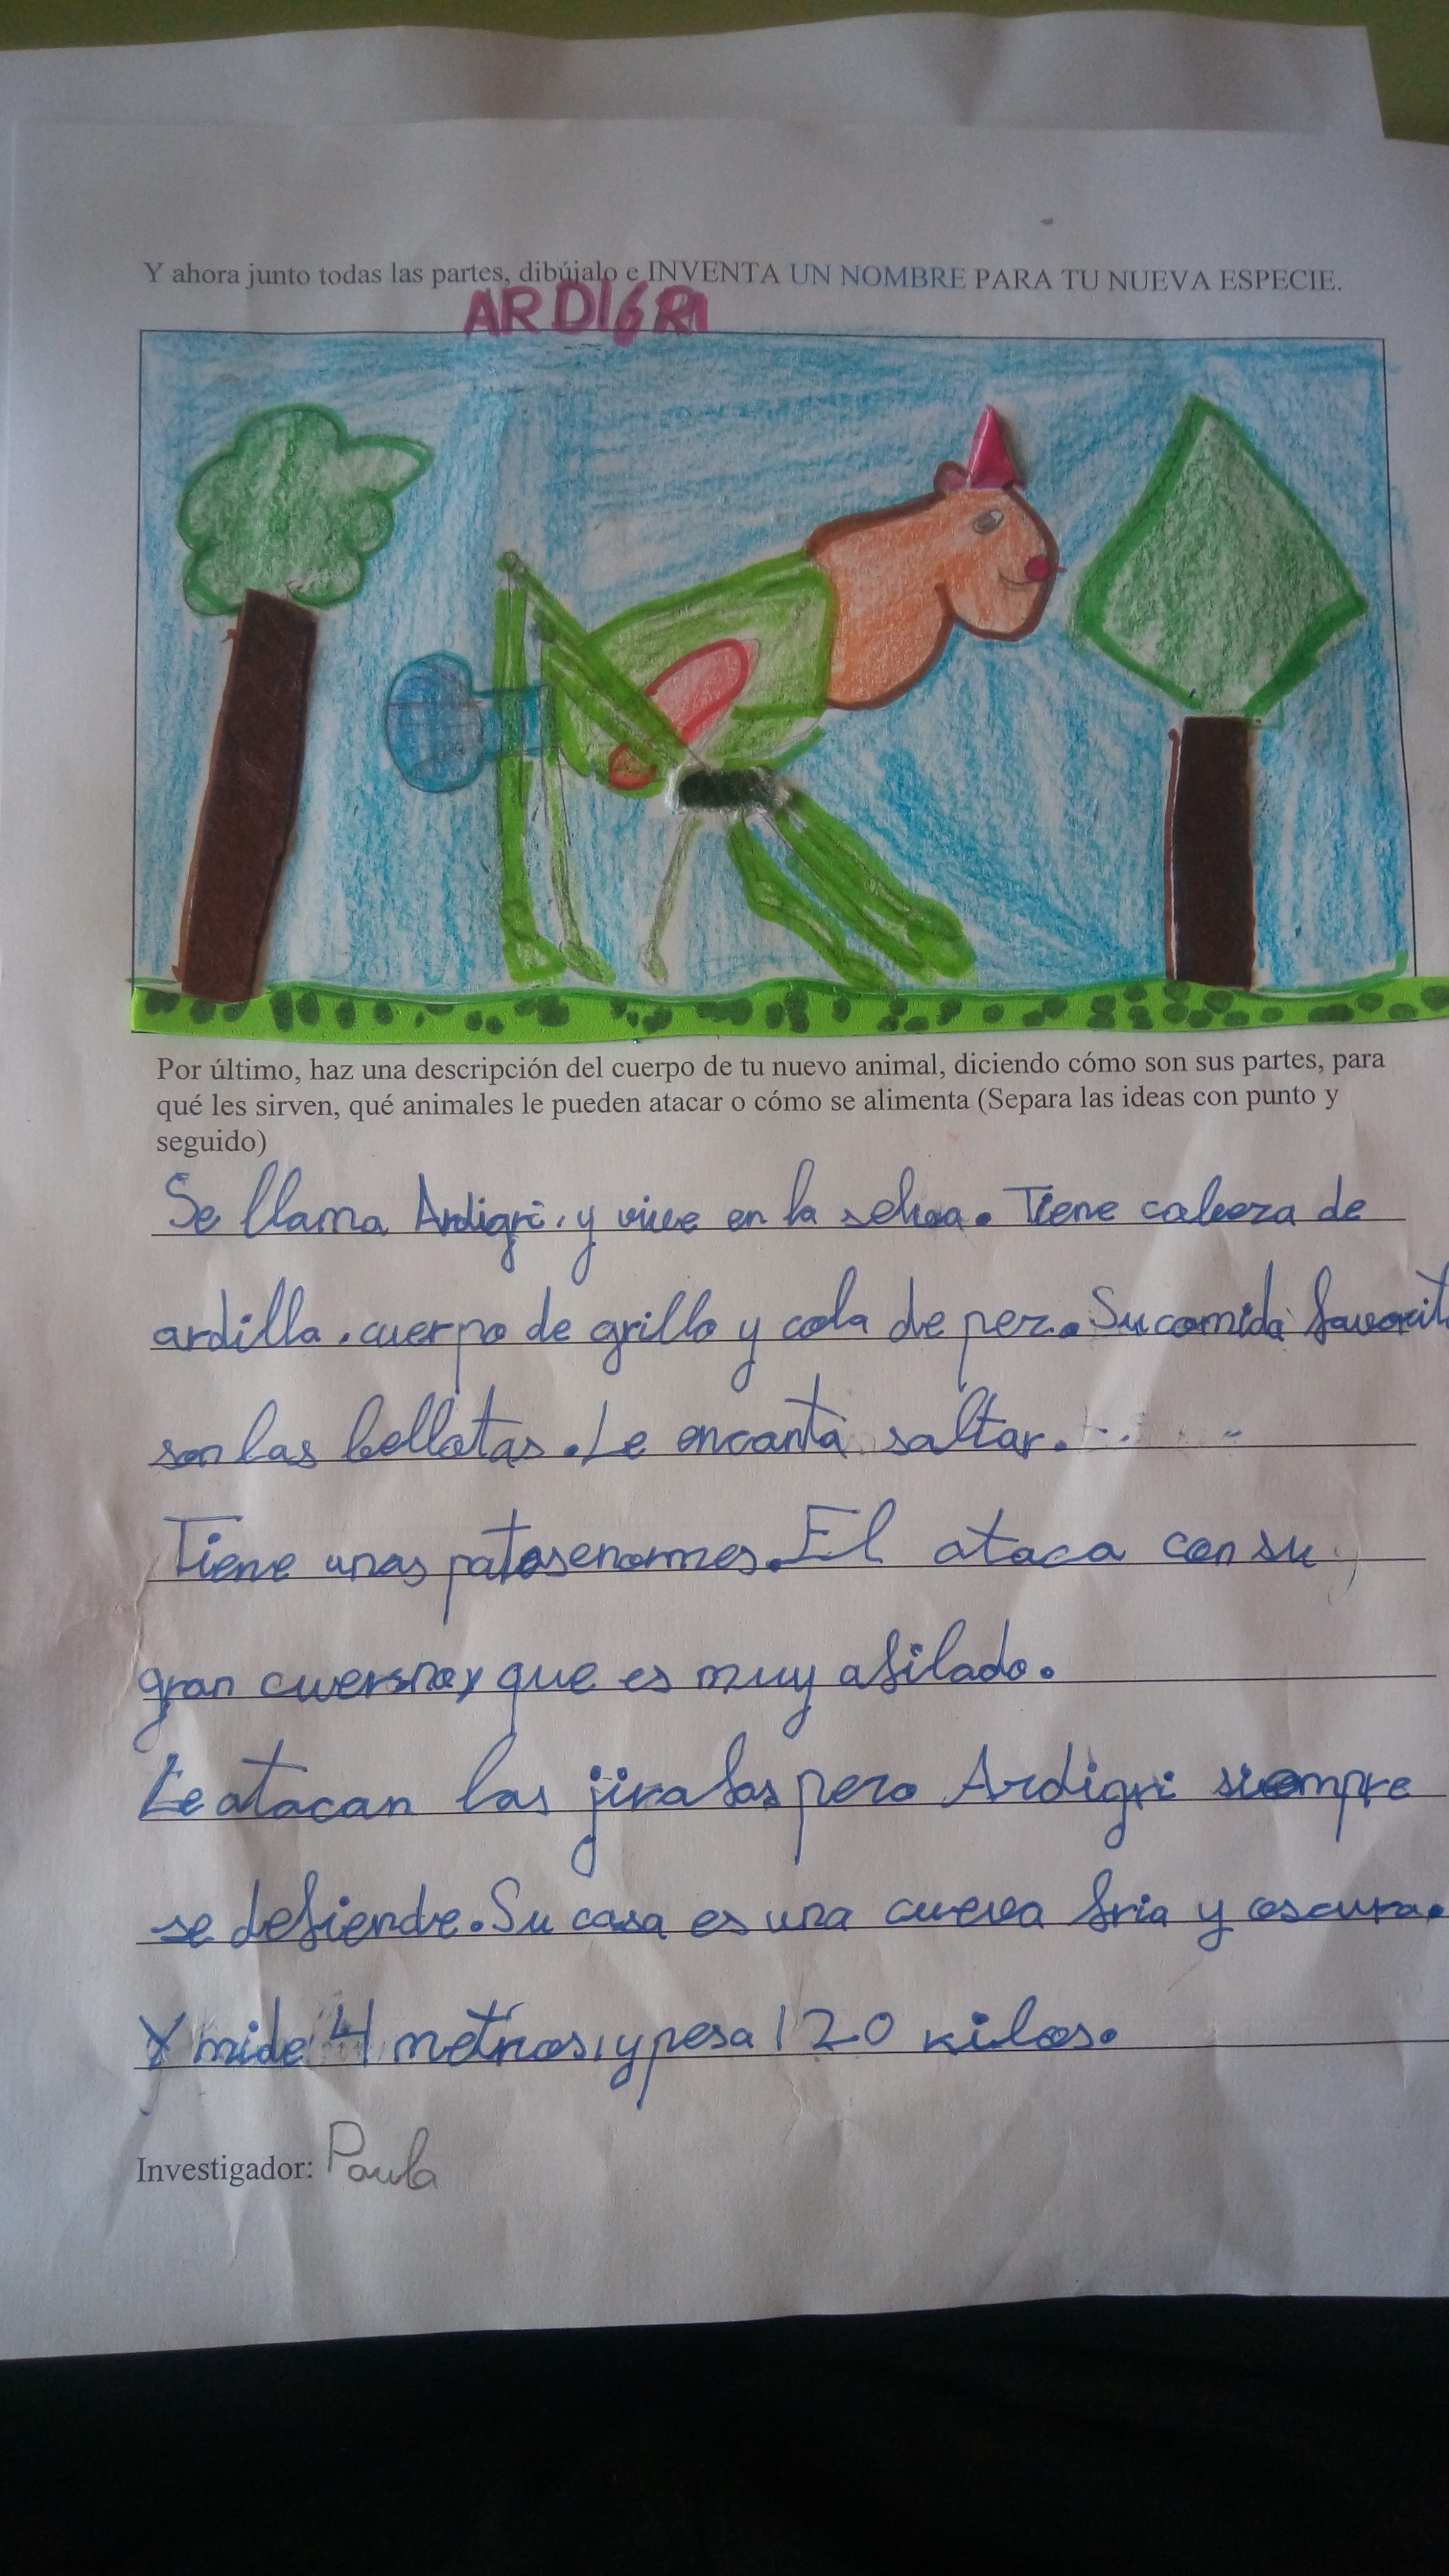 Y ahora junto todas las partes, dibújalo e INVENTA UN NOMBRE PARA TU NUEVA ESPECIE.
ARDIGRI
Por último, haz una descripción del cuerpo de tu nuevo animal, diciendo cómo son sus partes, para
qué les sirven, qué animales le pueden atacar o cómo se alimenta (Separa las ideas con punto y
seguido)
Se llama Ardigri, y vive en la selva. Tiene cabeza de
ardilla, cuerpo de grillo y cola de pez. Su comida favorit
son las bellotas. Le encanta saltar.
Tiene unas patas enormes. El ataca con su
gran cuerno, que es muy afilado.
Le atacan las jirafas pero Ardigri siempre
se defiende. Su casa es una cueva fria y oscura.
Y mide 4 metros, y pesa 120 kilos.
Investigador: Paula